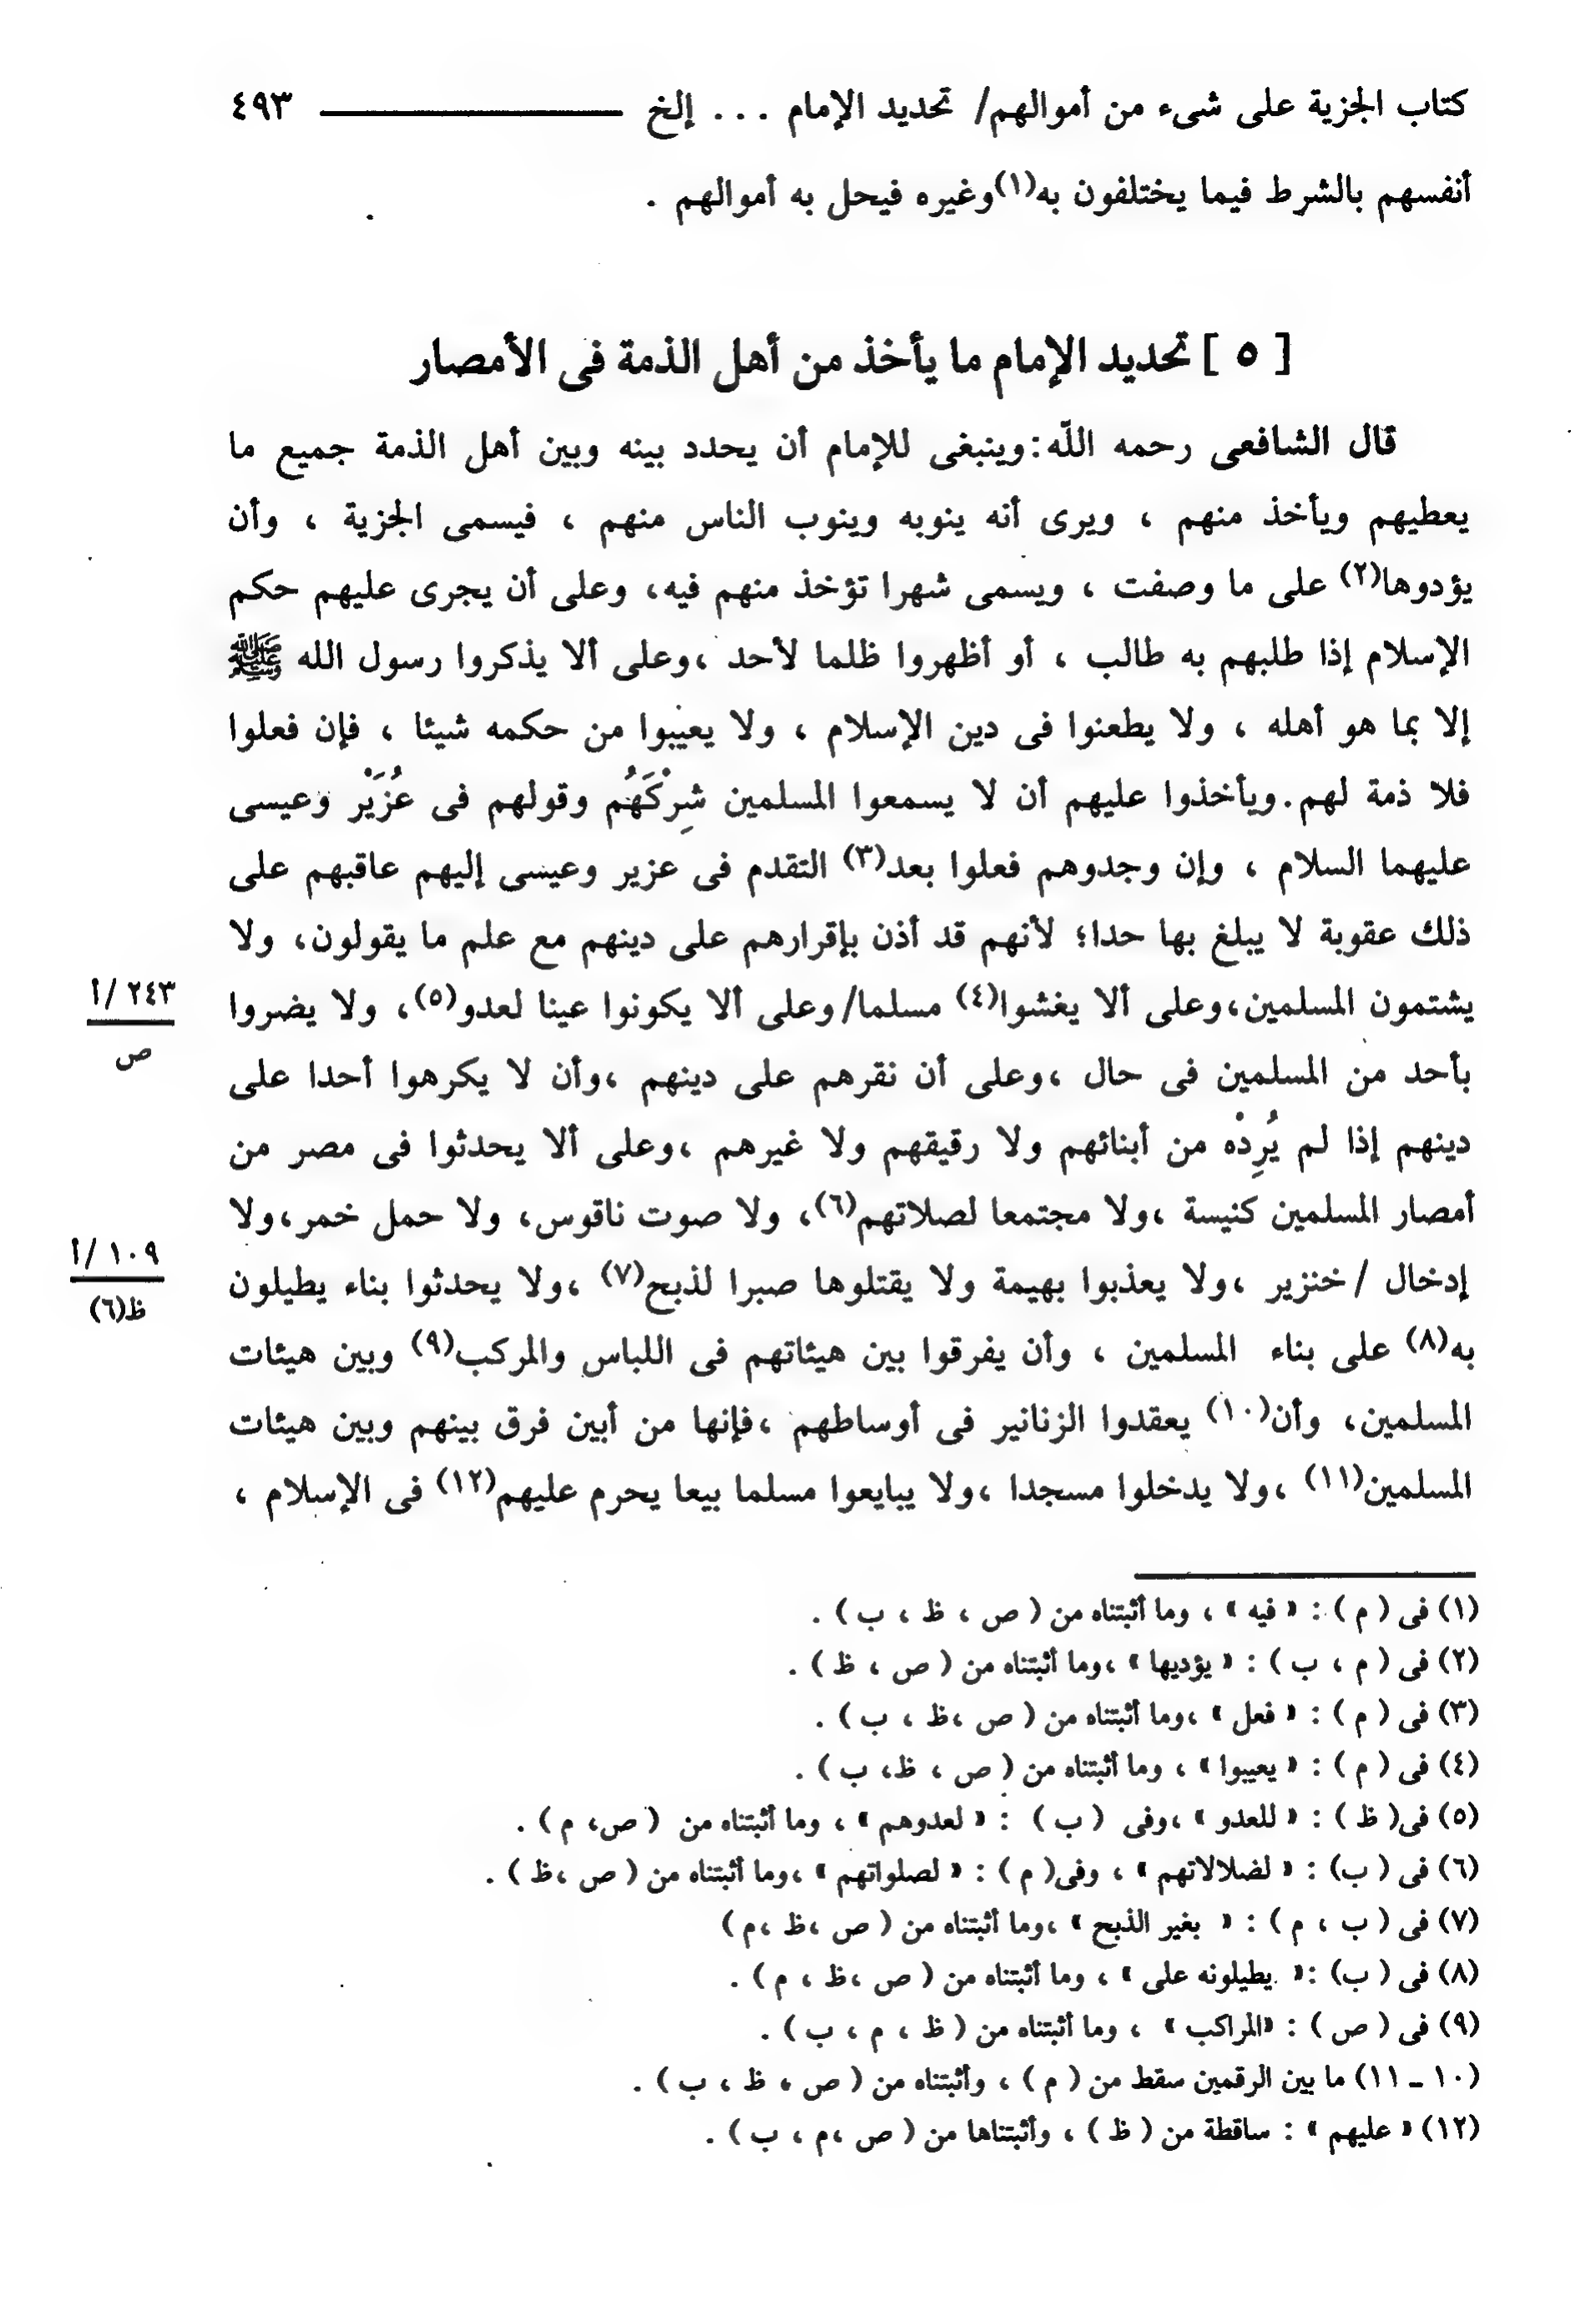 كتاب الجزية على شىء من أموالهم/ تحديد الإمام ... إلخ ٤٩٣
أنفسهم بالشرط فيما يختلفون به(١)وغيره فيحل به أموالهم .
[ ٥ ] تحديد الإمام ما يأخذ من أهل الذمة فى الأمصار
قال الشافعى رحمه اللّه:وينبغى للإمام أن يحدد بينه وبين أهل الذمة جميع ما
يعطيهم ويأخذ منهم ، ويرى أنه ينوبه وينوب الناس منهم ، فيسمى الجزية ، وأن
يؤدوها(٢) على ما وصفت ، ويسمى شهرا تؤخذ منهم فيه، وعلى أن يجرى عليهم حكم
الإسلام إذا طلبهم به طالب ، أو أظهروا ظلما لأحد ،وعلى ألا يذكروا رسول الله ﷺ
إلا بما هو أهله ، ولا يطعنوا فى دين الإسلام ، ولا يعيبوا من حكمه شيئا ، فإن فعلوا
فلا ذمة لهم.ويأخذوا عليهم أن لا يسمعوا المسلمين شِرْكَهُم وقولهم فى عُزَيْر وعيسى
عليهما السلام ، وإن وجدوهم فعلوا بعد(٣) التقدم فى عزير وعيسى إليهم عاقبهم على
ذلك عقوبة لا يبلغ بها حدا؛ لأنهم قد أذن بإقرارهم على دينهم مع علم ما يقولون، ولا
يشتمون المسلمين،وعلى ألا يغشوا(٤) مسلما/وعلى ألا يكونوا عينا لعدو(٥)، ولا يضروا
٢٤٣ /أ
ص
بأحد من المسلمين فى حال ،وعلى أن نقرهم على دينهم ،وأن لا يكرهوا أحدا على
دينهم إذا لم يُرِدْه من أبنائهم ولا رقيقهم ولا غيرهم ،وعلى ألا يحدثوا فى مصر من
أمصار المسلمين كنيسة ،ولا مجتمعا لصلاتهم(٦)، ولا صوت ناقوس، ولا حمل خمر،ولا
إدخال /خنزير ،ولا يعذبوا بهيمة ولا يقتلوها صبرا لذبح(٧) ،ولا يحدثوا بناء يطيلون
١٠٩ /أ
ظ(٦)
به(٨) على بناء المسلمين ، وأن يفرقوا بين هيئاتهم فى اللباس والمركب(٩) وبين هيئات
المسلمين، وأن(١٠) يعقدوا الزنانير فى أوساطهم ،فإنها من أبين فرق بينهم وبين هيئات
المسلمين(١١) ،ولا يدخلوا مسجدا ،ولا يبايعوا مسلما بيعا يحرم عليهم(١٢) فى الإسلام ،
(١) فى ( م ) : « فيه » ، وما أثبتناه من ( ص ، ظ ، ب ) .
(٢) فى ( م ، ب ) : « يؤديها » ،وما أثبتناه من ( ص ، ظ ) .
(٣) فى ( م ) : « فعل » ،وما أثبتناه من ( ص ،ظ ، ب ) .
(٤) فى ( م ) : « يعيبوا » ، وما أثبتناه من ( ص ، ظ، ب ) .
(٥) فى( ظ ) : « للعدو » ،وفى ( ب ) : « لعدوهم » ، وما أثبتناه من ( ص، م ) .
(٦) فى ( ب) : « لضلالاتهم » ، وفى( م ) : « لصلواتهم » ،وما أثبتناه من ( ص ،ظ ) .
(٧) فى ( ب ، م ) : « بغير الذبح » ،وما أثبتناه من ( ص ،ظ ،م )
(٨) فى ( ب) :« يطيلونه على » ، وما أثبتناه من ( ص ،ظ ، م ) .
(٩) فى ( ص ) : «المراكب » ، وما أثبتناه من ( ظ ، م ، ب ) .
(١٠ ـ ١١) ما بين الرقمين سقط من ( م ) ، وأثبتناه من ( ص ، ظ ، ب ) .
(١٢) « عليهم » : ساقطة من ( ظ ) ، وأثبتناها من ( ص ،م ، ب ) .